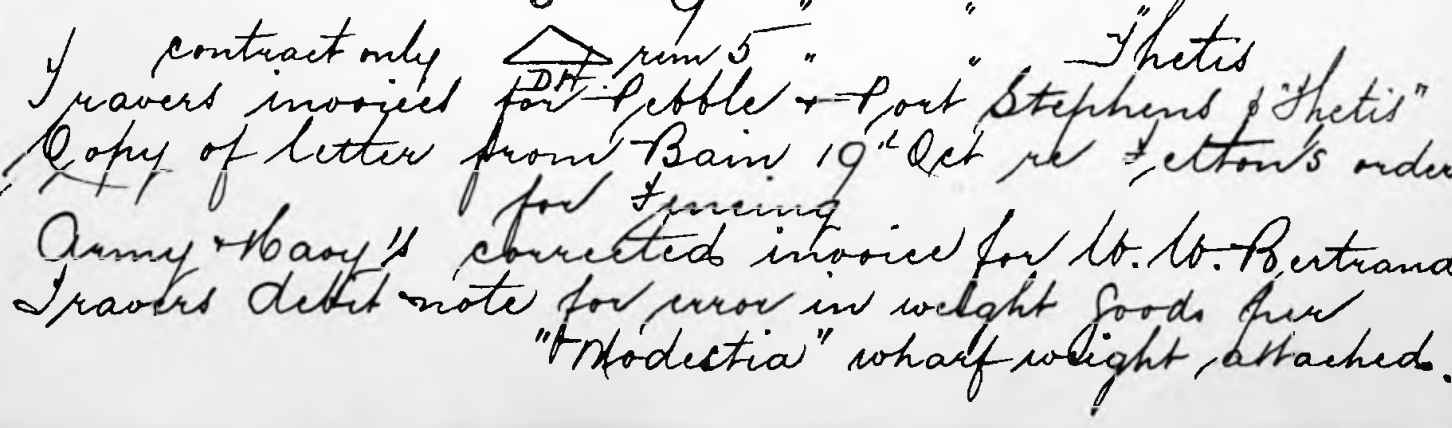 " "
I contract only DH. run 5 " " Thetis
Travers invoices for Pebble & Port Stephens p "Thetis"
Copy of letter from Bain 19th Oct re Felton's order
for Fencing
Army & Navy's corrected invoice for W. W. Bertrand
Travers debit note for error in weight goods per
"Modestia" wharf weight attached.